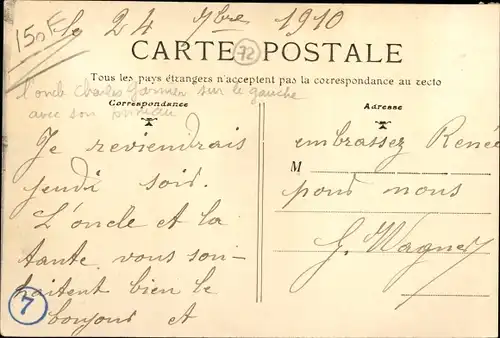 150F
le 24 7bre 1910
CARTE POSTALE
72
Tous les pays étrangers n'acceptent pas la correspondance au recto
l'oncle Charles Garnier sur le gauche
avec son
Correspondance
Adresse
Je reviendrais
jeudi soir.
L'oncle et la
tante vous sou-
haitent bien le
bonjour et
embrassez Renee
M
pour nous
G. Wagner
7